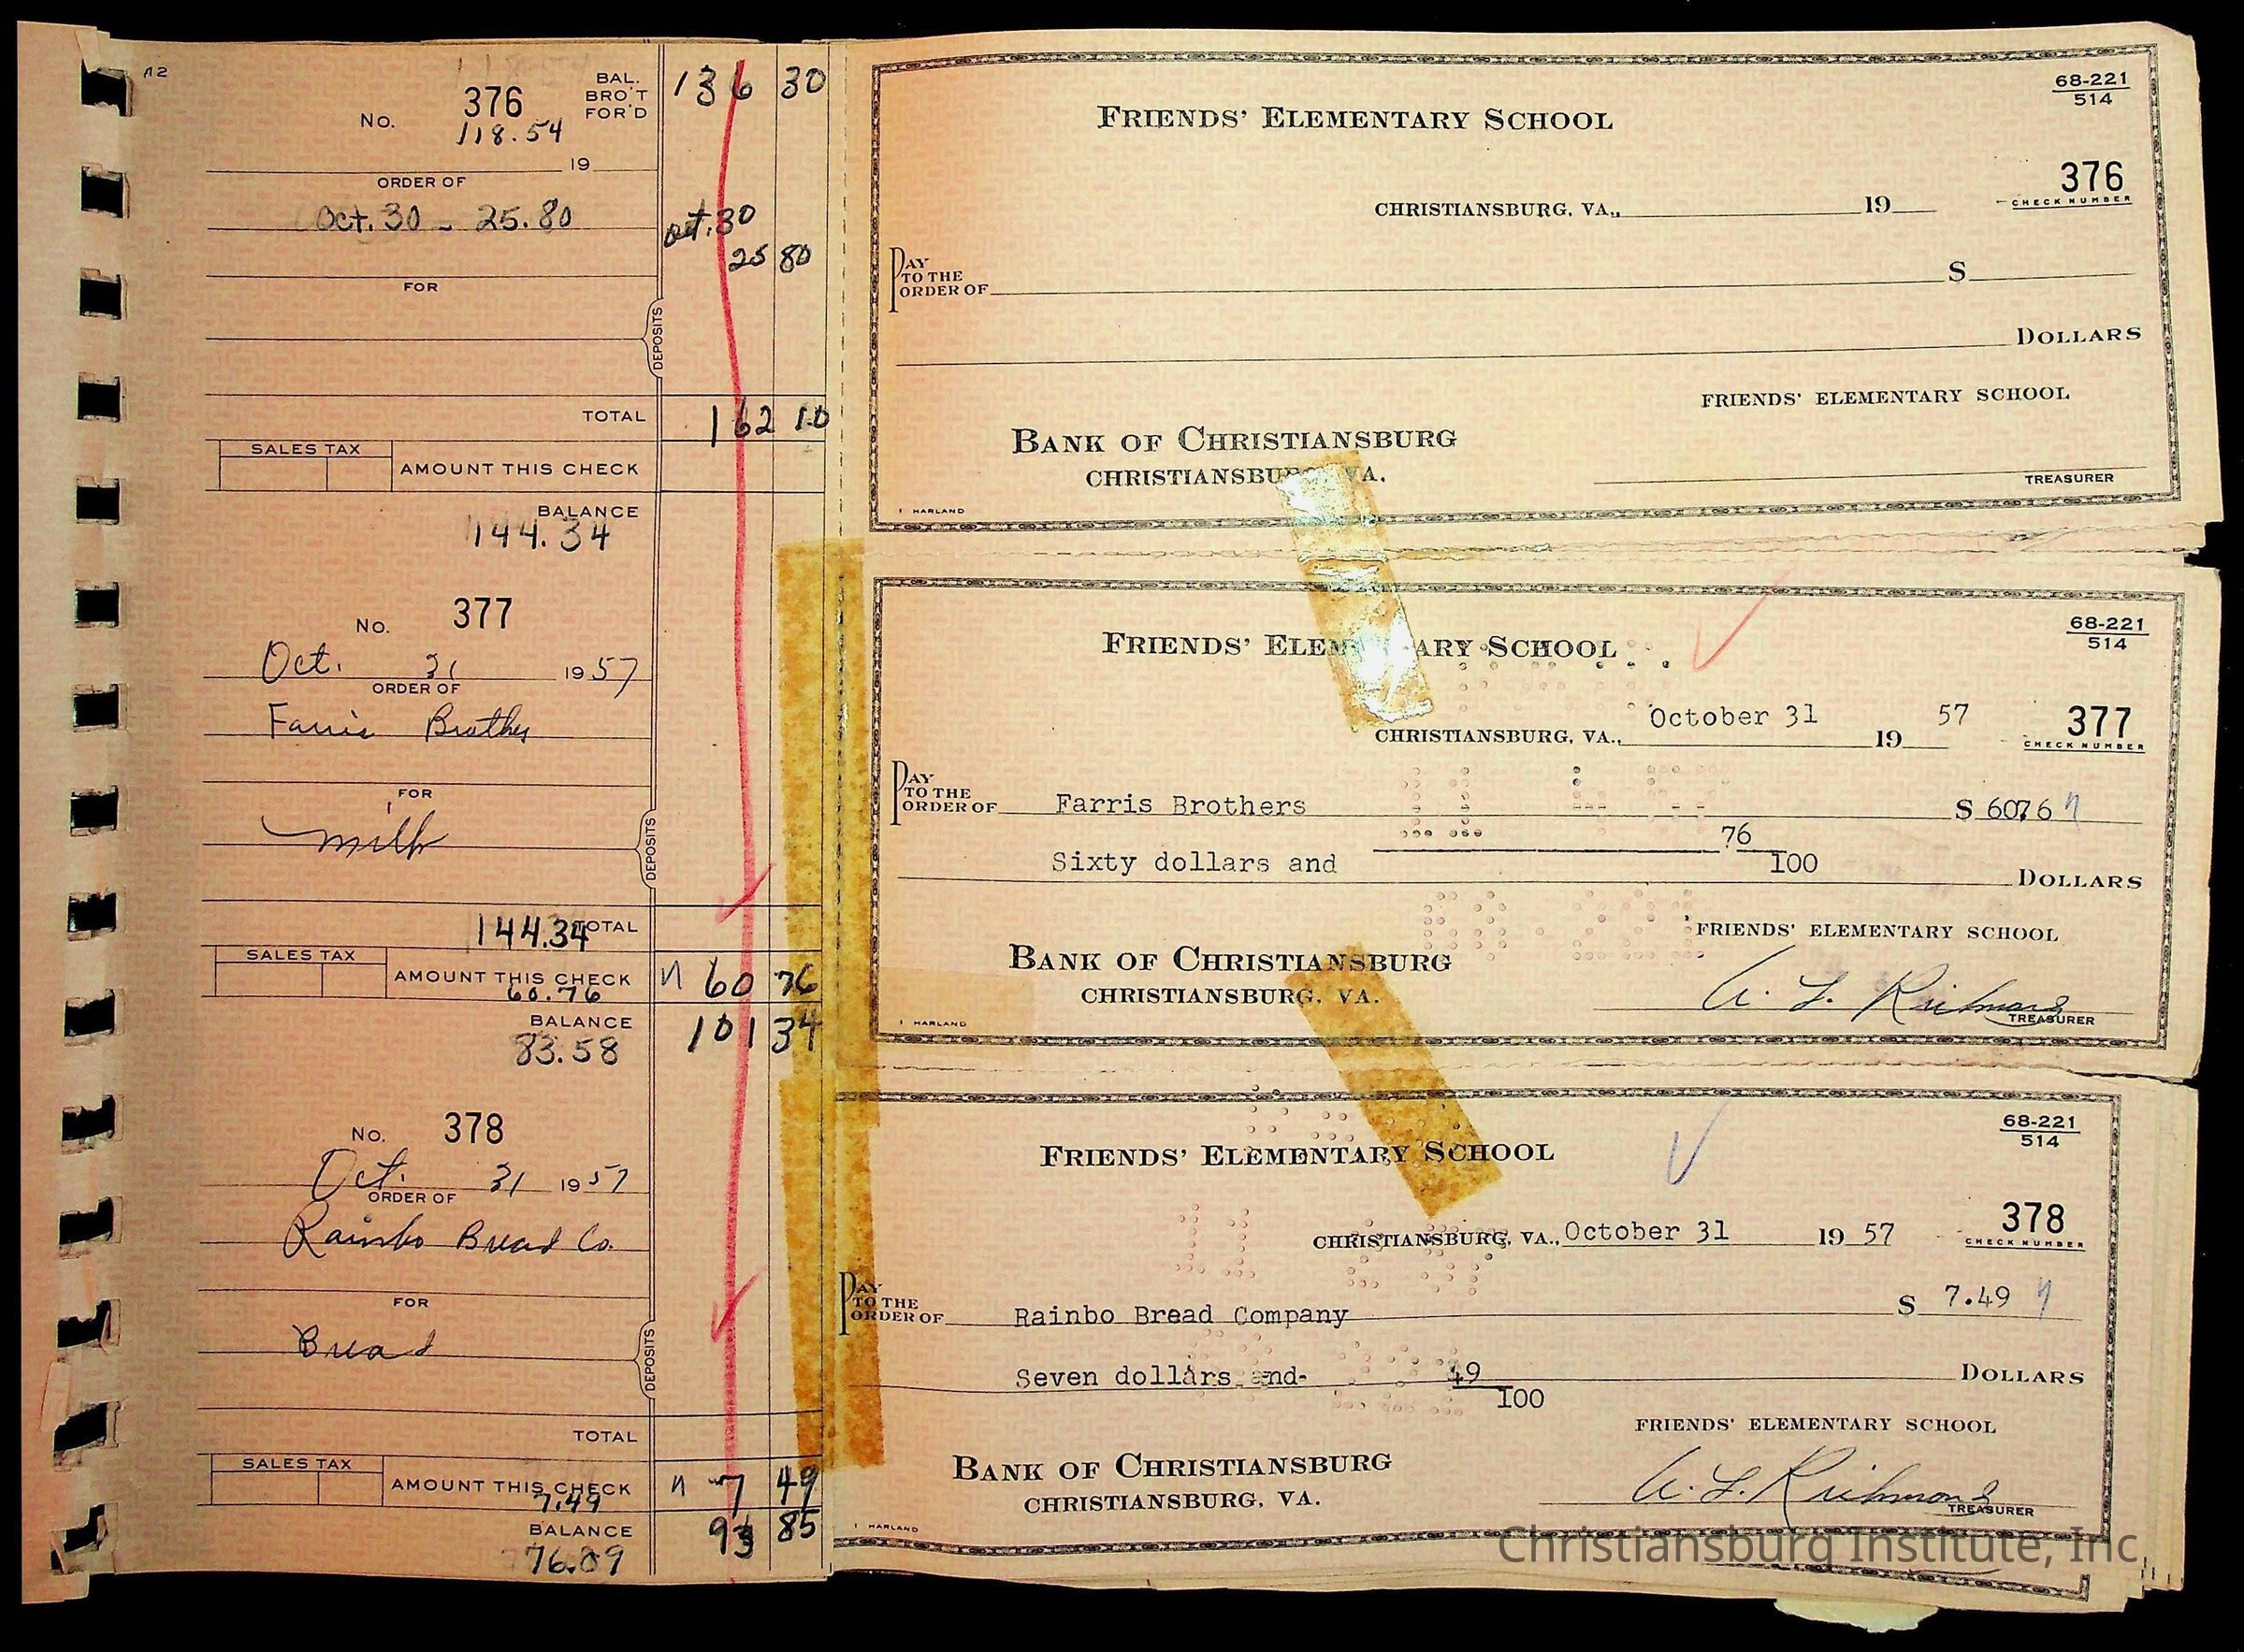 No. 376
118.54
BAL. BRO'T FOR'D 136 30
19
ORDER OF
Oct. 30 - 25.80
Oct. 30
25 80
FOR
DEPOSITS
TOTAL 162 10
SALES TAX
AMOUNT THIS CHECK
BALANCE
144.34
No. 377
Oct. 31 1957
ORDER OF
Farris Brothers
FOR
milk
DEPOSITS
144.34 TOTAL
SALES TAX
AMOUNT THIS CHECK 60 76
60.76
BALANCE 101 34
83.58
No. 378
Oct. 31 1957
ORDER OF
Rainbo Bread Co.
FOR
Bread
DEPOSITS
TOTAL
SALES TAX
AMOUNT THIS CHECK 7 49
7.49
BALANCE 93 85
FRIENDS' ELEMENTARY SCHOOL
68-221
514
376
CHECK NUMBER
CHRISTIANSBURG, VA., 19
PAY TO THE ORDER OF $
DOLLARS
FRIENDS' ELEMENTARY SCHOOL
BANK OF CHRISTIANSBURG
CHRISTIANSBURG, VA.
TREASURER
HARLAND
FRIENDS' ELEMENTARY SCHOOL
68-221
514
CHRISTIANSBURG, VA., October 31 19 57
377
CHECK NUMBER
PAY TO THE ORDER OF Farris Brothers $ 6076
Sixty dollars and 76
100 DOLLARS
FRIENDS' ELEMENTARY SCHOOL
BANK OF CHRISTIANSBURG
CHRISTIANSBURG, VA.
A. L. Richmond
TREASURER
HARLAND
FRIENDS' ELEMENTARY SCHOOL
68-221
514
CHRISTIANSBURG, VA., October 31 19 57
378
CHECK NUMBER
PAY TO THE ORDER OF Rainbo Bread Company $ 7.49
Seven dollars and- 49
100 DOLLARS
FRIENDS' ELEMENTARY SCHOOL
BANK OF CHRISTIANSBURG
CHRISTIANSBURG, VA.
A. L. Richmond
TREASURER
HARLAND
Christiansburg Institute, Inc